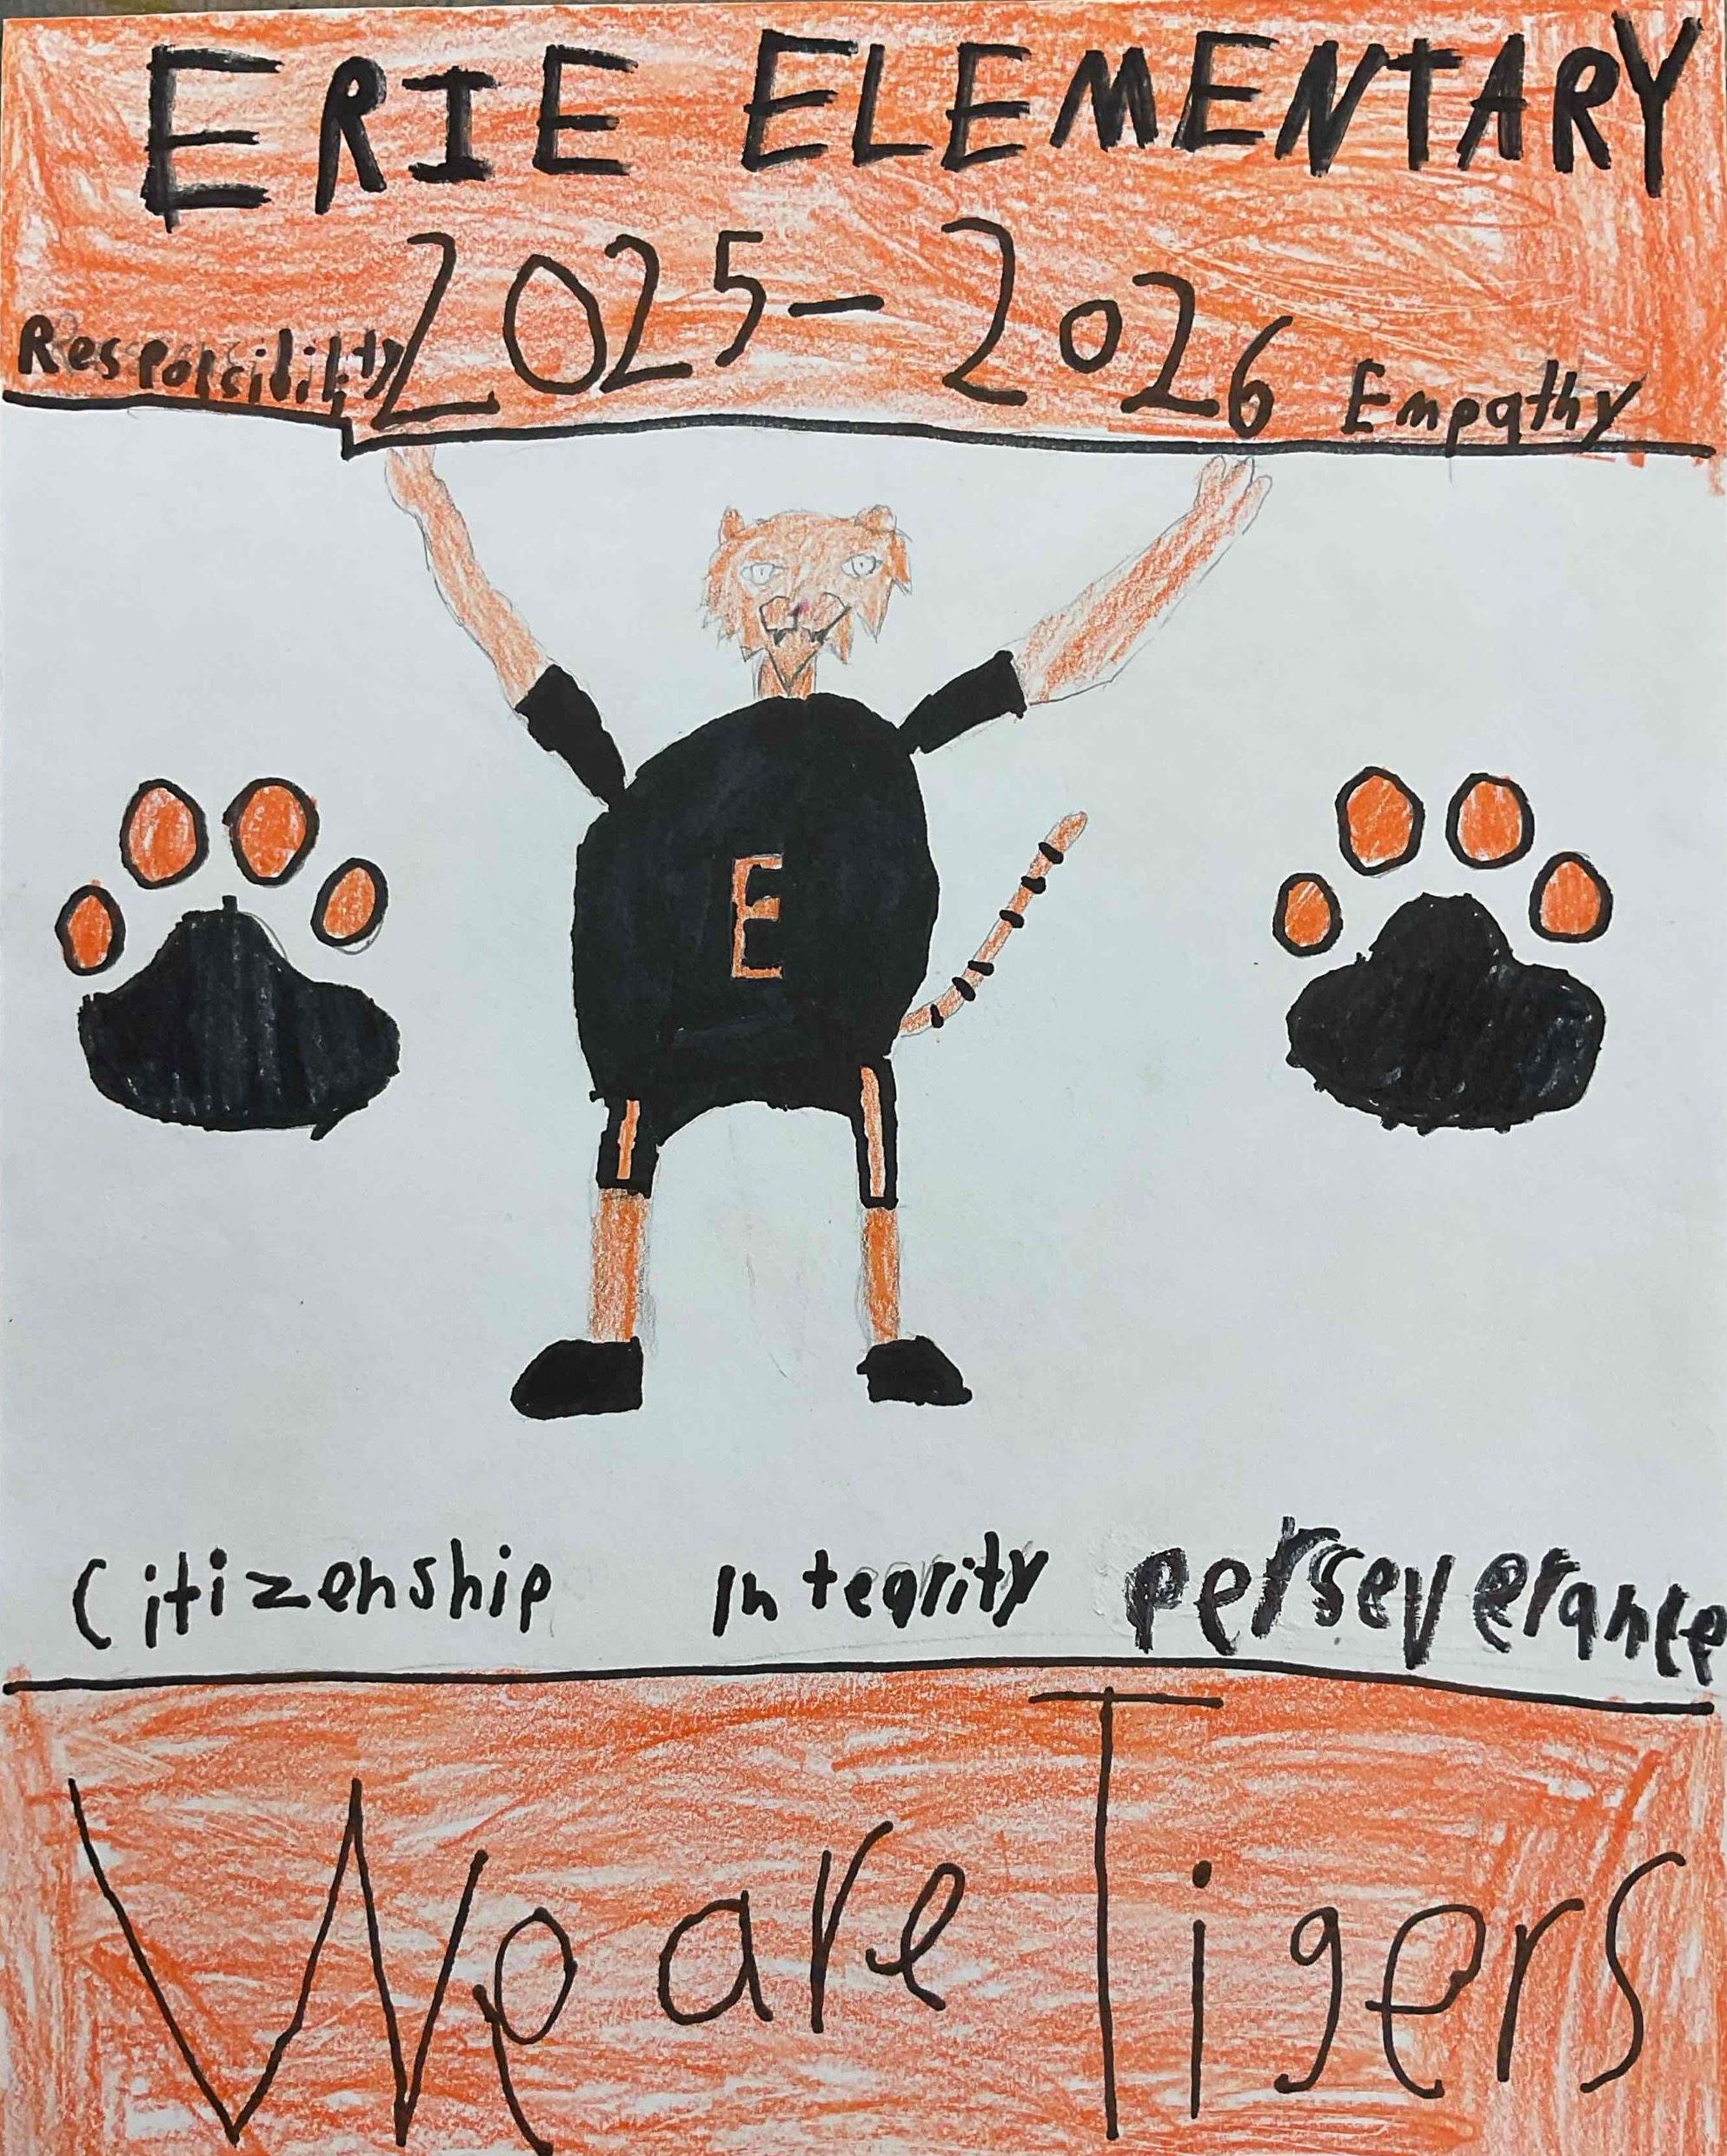 ERIE ELEMENTARY
2025-2026
Responsibility
Empathy
E
Citizenship Integrity perseverance
We are Tigers